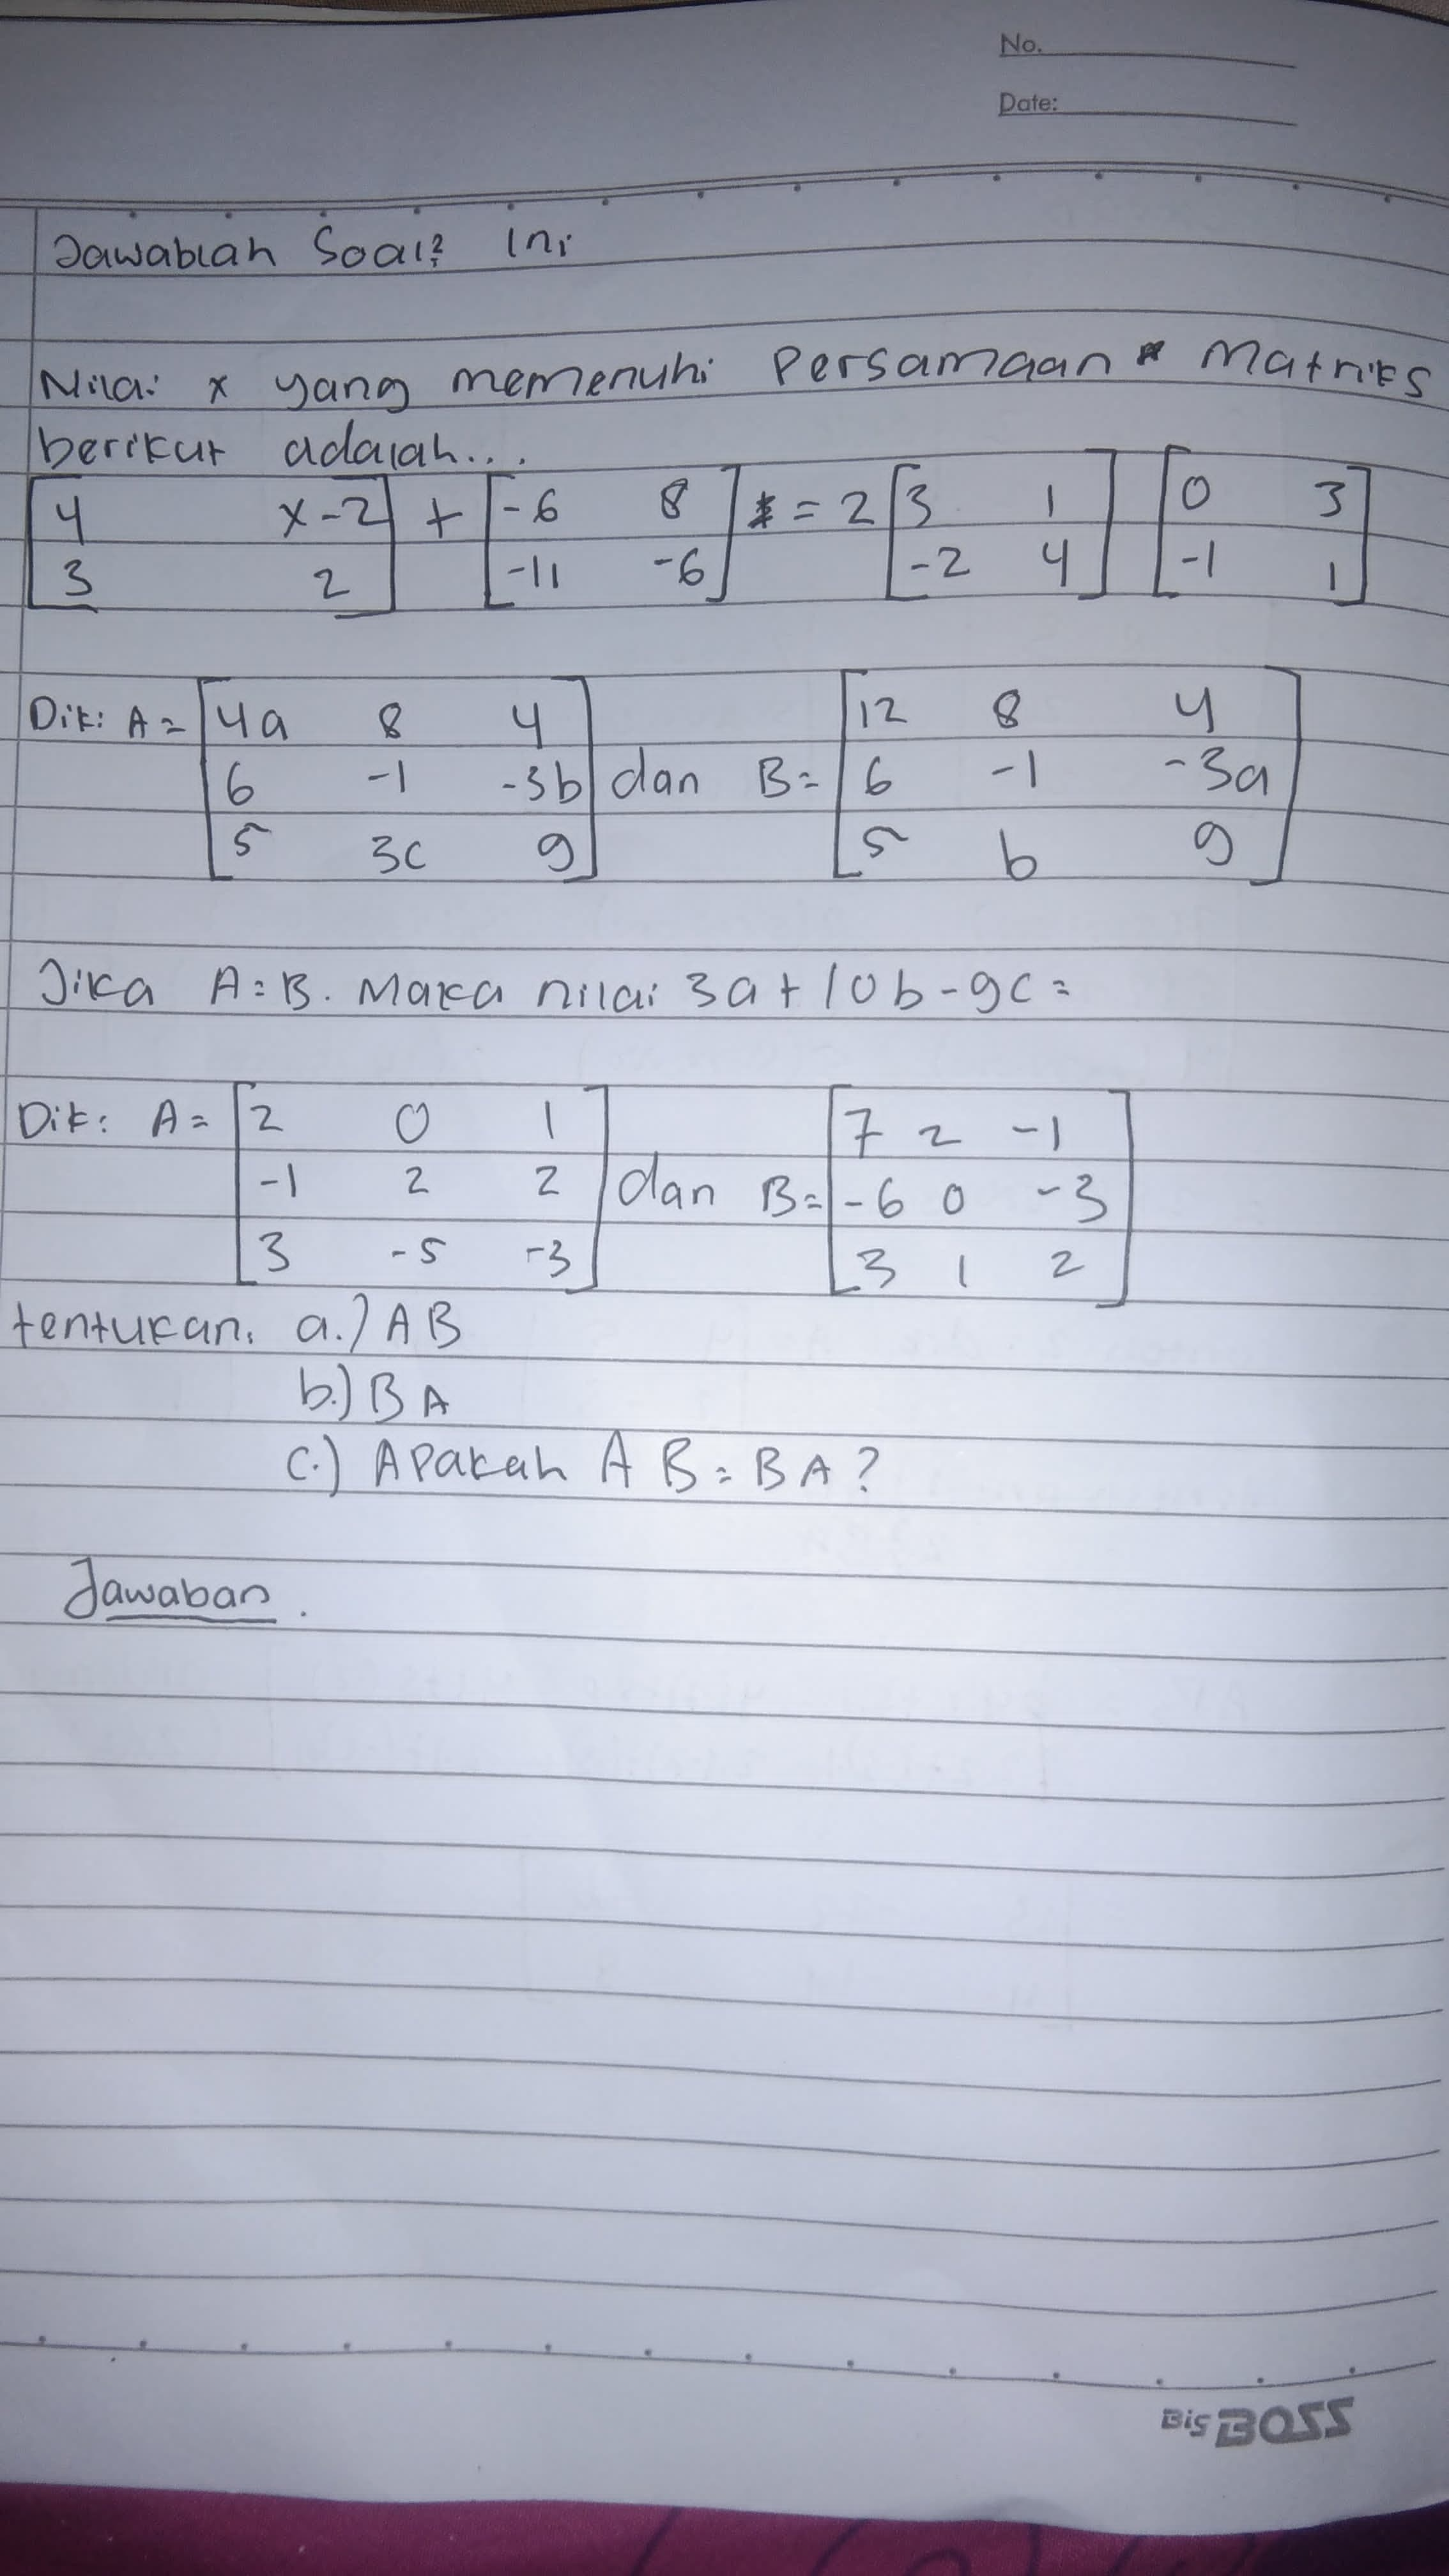 No.
Date:
Jawablah Soal² Ini
Nilai x yang memenuhi Persamaan Matriks
berikut adalah...
[4 x-2] + [-6 8] = 2 [3 1] [0 3]
[3 2] [-11 -6] [-2 4] [-1 1]
Dik: A = [4a 8 4] [12 8 4]
[6 -1 -3b] dan B= [6 -1 -3a]
[5 3c 9] [5 b 9]
Jika A=B. Maka nilai 3a+10b-9c=
Dik: A= [2 0 1] [7 2 -1]
[-1 2 2] dan B= [-6 0 -3]
[3 -5 -3] [3 1 2]
tentukan. a.) AB
b.) BA
c.) Apakah AB=BA?
Jawaban.
Big BOSS